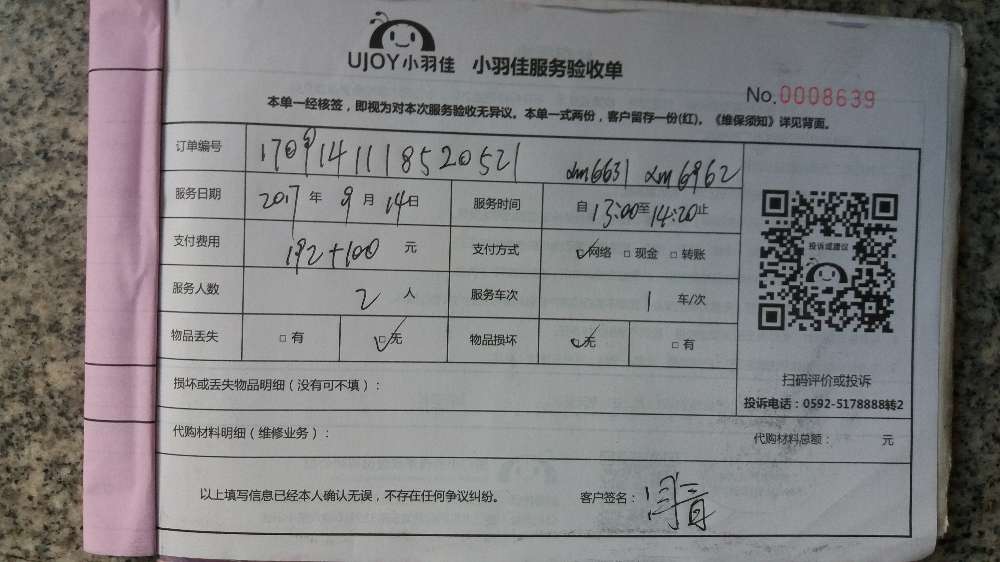 UJOY小羽佳 小羽佳服务验收单
No.0008639
本单一经核签，即视为对本次服务验收无异议。本单一式两份，客户留存一份(红)。《维保须知》详见背面。
订单编号 1709141118520521 xm6631 xm6962
服务日期 2017年9月14日 服务时间 自13:00至14:20止
支付费用 192+100 元 支付方式 ☑网络 □现金 □转账
投诉或建议
服务人数 2 人 服务车次 1 车/次
物品丢失 □有 ☑无 物品损坏 ☑无 □有
扫码评价或投诉
损坏或丢失物品明细（没有可不填）：
投诉电话：0592-5178888转2
代购材料明细（维修业务）： 代购材料总额： 元
以上填写信息已经本人确认无误，不存在任何争议纠纷。 客户签名：